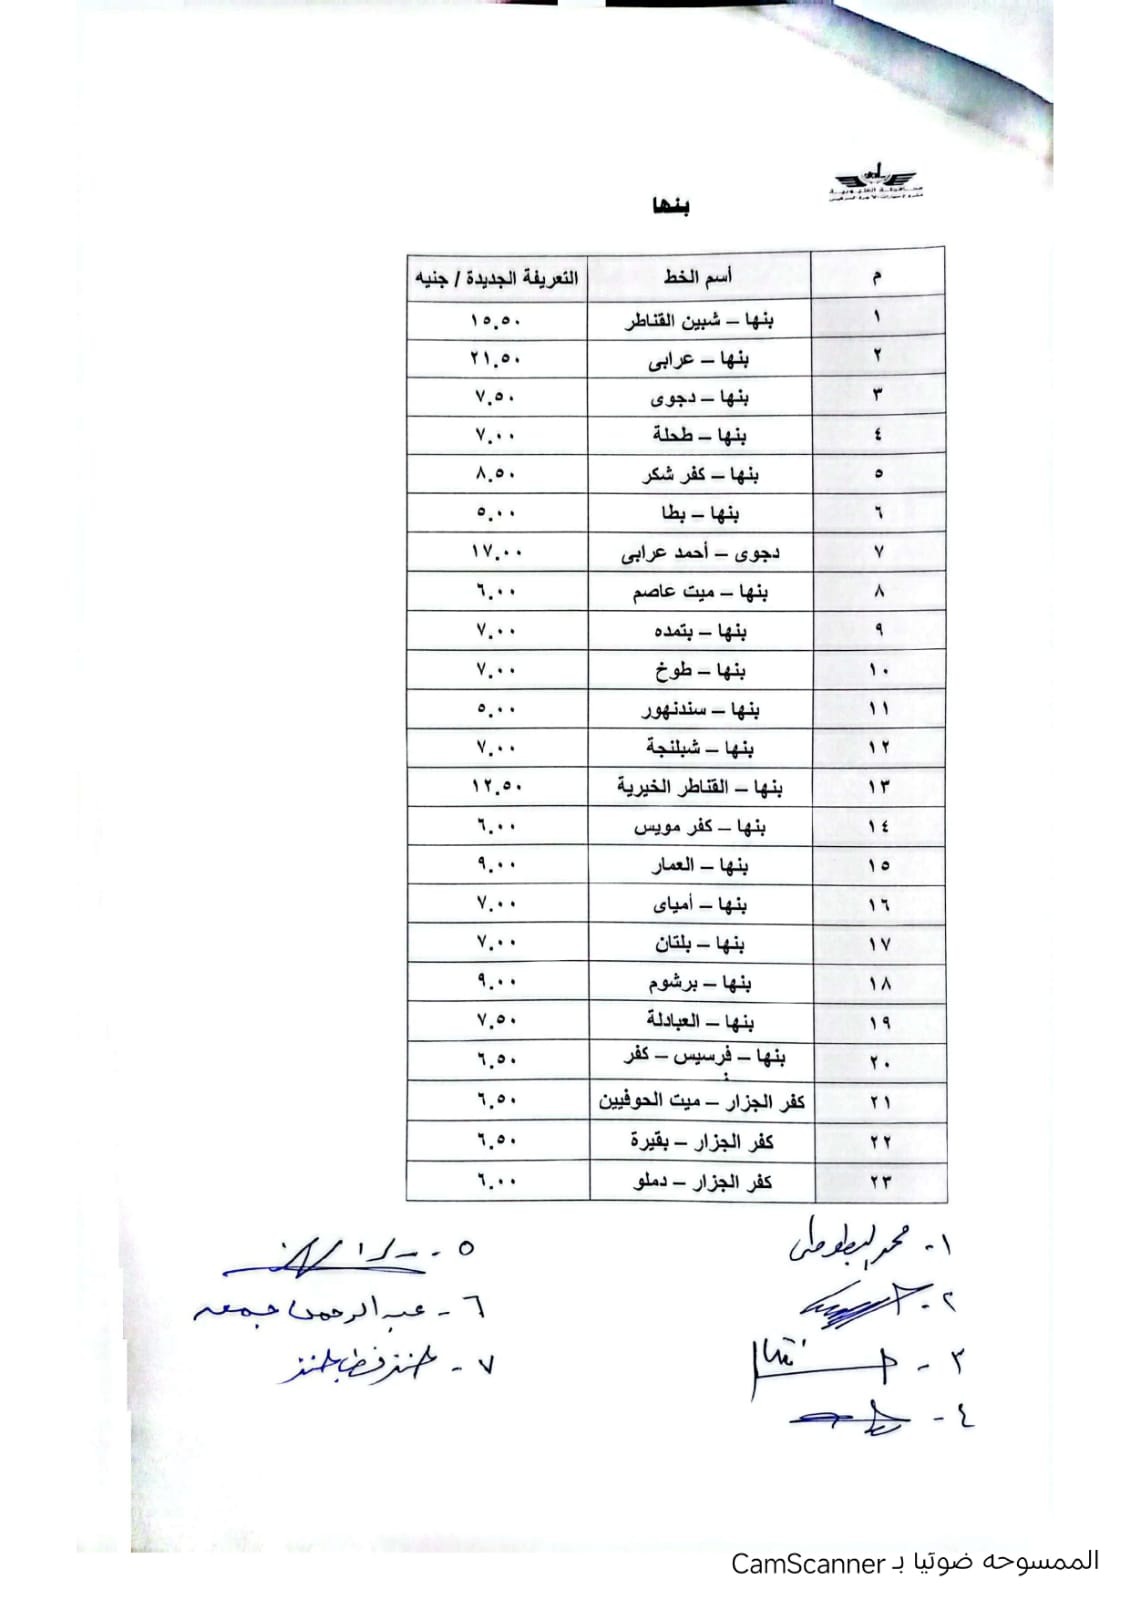 محافظة القليوبية
بنها
م أسم الخط التعريفة الجديدة / جنيه
١ بنها – شبين القناطر ١٥.٥٠
٢ بنها – عرابى ٢١.٥٠
٣ بنها – دجوى ٧.٥٠
٤ بنها – طحلة ٧.٠٠
٥ بنها – كفر شكر ٨.٥٠
٦ بنها – بطا ٥.٠٠
٧ دجوى – أحمد عرابى ١٧.٠٠
٨ بنها – ميت عاصم ٦.٠٠
٩ بنها – بتمده ٧.٠٠
١٠ بنها – طوخ ٧.٠٠
١١ بنها – سندنهور ٥.٠٠
١٢ بنها – شبلنجة ٧.٠٠
١٣ بنها – القناطر الخيرية ١٢.٥٠
١٤ بنها – كفر مويس ٦.٠٠
١٥ بنها – العمار ٩.٠٠
١٦ بنها – أمياى ٧.٠٠
١٧ بنها – بلتان ٧.٠٠
١٨ بنها – برشوم ٩.٠٠
١٩ بنها – العبادلة ٧.٥٠
٢٠ بنها – فرسيس – كفر ٦.٥٠
٢١ كفر الجزار – ميت الحوفيين ٦.٥٠
٢٢ كفر الجزار – بقيرة ٦.٥٠
٢٣ كفر الجزار – دملو ٦.٠٠
١- محمد
٢-
٣-
٤-
٥-
٦- عبد الرحمن جمعه
٧-
الممسوحه ضوئيا بـ CamScanner